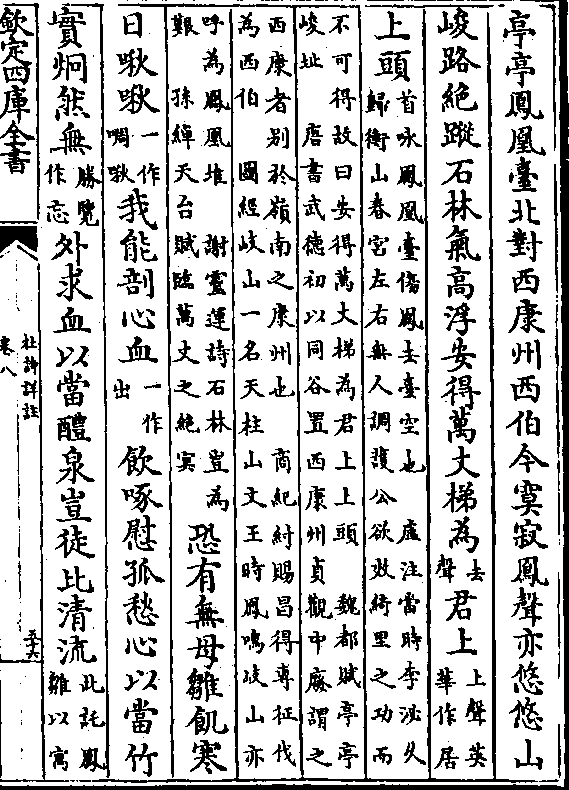 亭亭鳳凰臺北對西康州西伯今寞寂鳳聲亦悠悠山
峻路絕蹤石林氣高浮安得萬丈梯為去聲君上上聲英華作居
上頭首咏鳳凰臺傷鳳去臺空也 盧注當時李泌久
歸衡山春宮左右無人調護公欲效綺里之功而
不可得故曰安得萬丈梯為君上上頭 魏都賦亭亭
峻址 唐書武德初以同谷置西康州貞觀中廢謂之
西康者別於嶺南之康州也 商紀紂賜昌得專征伐
為西伯 圖經岐山一名天柱山文王時鳳鳴岐山亦
呼為鳳凰堆 謝靈運詩石林豈為
艱 孫綽天台賦臨萬丈之絕冥恐有無母雛飢寒
日啾啾一作啁啾我能剖心血一作出飲啄慰孤愁心以當竹
實炯然無勝覽作忘外求血以當醴泉豈徒比清流此託鳳雛以寓
欽定四庫全書
杜詩詳註
卷八
五十六